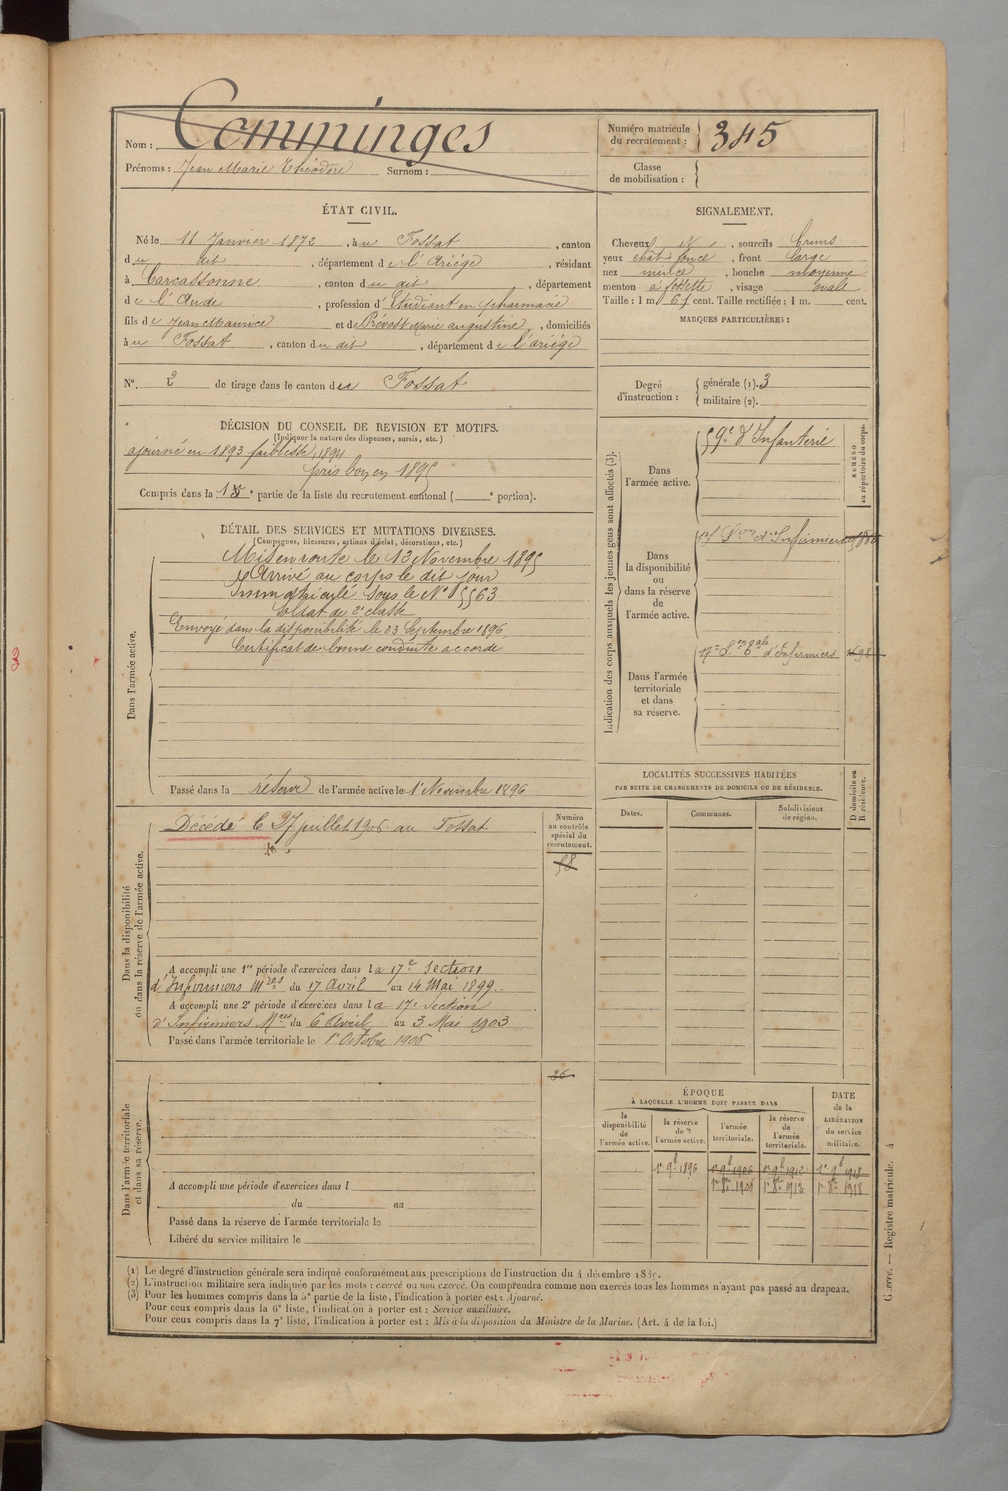 Nom : Comminges
Prénoms : Jean Marie Théodore Surnom :
Numéro matricule du recrutement : 345
Classe de mobilisation :
ÉTAT CIVIL.
Né le 11 Janvier 1872, à u Fossat, canton
d u dit, département d e l'Ariège, résidant
à Carcassonne, canton d u dit, département
d e l'Aude, profession d' Etudiant en pharmacie
fils d e Jean Maurice et de Prévost Marie augustine, domiciliés
à u Fossat, canton d u dit, département d e l'ariège
N°. 2 de tirage dans le canton d u Fossat
SIGNALEMENT.
Cheveux N, sourcils bruns
yeux chât foncé, front large
nez mince, bouche moyenne
menton à fossette, visage ovale
Taille : 1 m. 65 cent. Taille rectifiée : 1 m. cent.
MARQUES PARTICULIÈRES :
Degré d'instruction : générale (1). 3
militaire (2).
DÉCISION DU CONSEIL DE REVISION ET MOTIFS.
(Indiquer la nature des dispenses, sursis, etc.)
ajourné en 1893 faiblesse, 1894
pris bon en 1895
Compris dans la 1re partie de la liste du recrutement cantonal ( e portion).
DÉTAIL DES SERVICES ET MUTATIONS DIVERSES.
(Campagnes, blessures, actions d'éclat, décorations, etc.)
Dans l'armée active.
Mis en route le 13 Novembre 1895
Arrivé au corps le dit jour
Immatriculé sous le N° 5563
Soldat de 2e classe
Envoyé dans la disponibilité le 23 Septembre 1896
Certificat de bonne conduite accordé
Passé dans la réserve de l'armée active le 1 Novembre 1896
Indication des corps auxquels les jeunes gens sont affectés (3).
NUMÉRO au répertoire du corps.
Dans l'armée active.
59e d'Infanterie
Dans la disponibilité ou dans la réserve de l'armée active.
d'Infirmiers
Dans l'armée territoriale et dans sa réserve.
17e d'Infirmiers
LOCALITÉS SUCCESSIVES HABITÉES
PAR SUITE DE CHANGEMENTS DE DOMICILE OU DE RÉSIDENCE.
Dates. Communes. Subdivisions de région. D domicile ou R résidence.
Dans la disponibilité ou dans la réserve de l'armée active.
Numéro au contrôle spécial du recrutement.
Décédé le 27 juillet 1906 au Fossat.
58
A accompli une 1re période d'exercices dans l a 17e Section
d'Infirmiers Mres du 17 Avril au 14 Mai 1899.
A accompli une 2e période d'exercices dans l a 17e Section
d'Infirmiers Mres du 6 Avril au 3 Mai 1903
Passé dans l'armée territoriale le 1 Octobre 1906
Dans l'armée territoriale et dans sa réserve.
26
A accompli une période d'exercices dans l
du au
Passé dans la réserve de l'armée territoriale le
Libéré du service militaire le
ÉPOQUE
À LAQUELLE L'HOMME DOIT PASSER DANS
DATE de la LIBÉRATION du service militaire.
la disponibilité de l'armée active. la réserve de l'armée active. l'armée territoriale. la réserve de l'armée territoriale.
1er 9bre 1896 1er 9bre 1906 1er 9bre 1912 1er 9bre 1918
1er 8bre 1906 1er 8bre 1912 1er 8bre 1918
(1) Le degré d'instruction générale sera indiqué conformément aux prescriptions de l'instruction du 4 décembre
(2) L'instruction militaire sera indiquée par les mots : exercé ou non exercé. On comprendra comme non exercés tous les hommes n'ayant pas passé au drapeau.
(3) Pour les hommes compris dans la 5e partie de la liste, l'indication à porter est : Ajourné.
Pour ceux compris dans la 6e liste, l'indication à porter est : Service auxiliaire.
Pour ceux compris dans la 7e liste, l'indication à porter est : Mis à la disposition du Ministre de la Marine. (Art. 4 de la loi.)
Guerre. — Registre matricule. 4